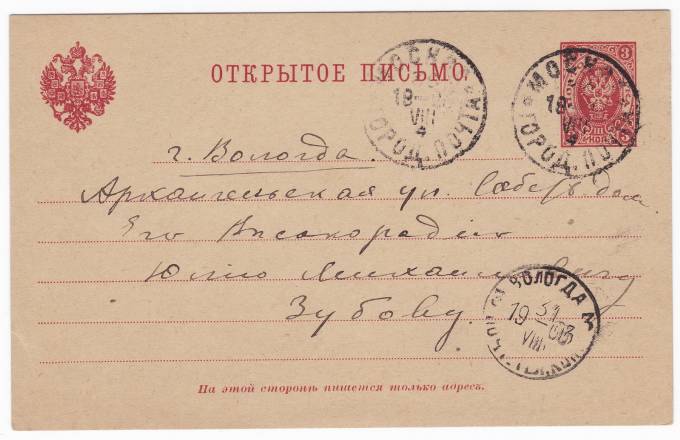 ОТКРЫТОЕ ПИСЬМО.
МОСКВА
19
VIII
4
ГОРОД. ПОЧТА
МОСКВА
19
VIII
4
ГОРОД. ПОЧТА
3
г. Вологда.
Архангельская ул. Собств. дом
Его Высокородiю
Юлiю Михайловичу
Зубову.
ВОЛОГДА
19 31 03
VIII
На этой сторонѣ пишется только адресъ.